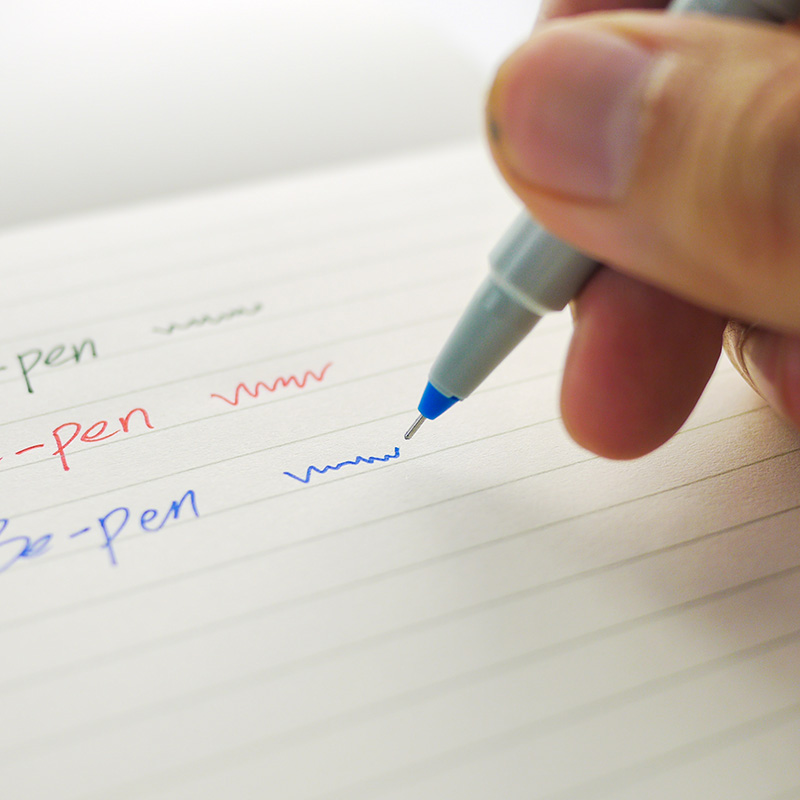 -pen
e-pen
Be-pen